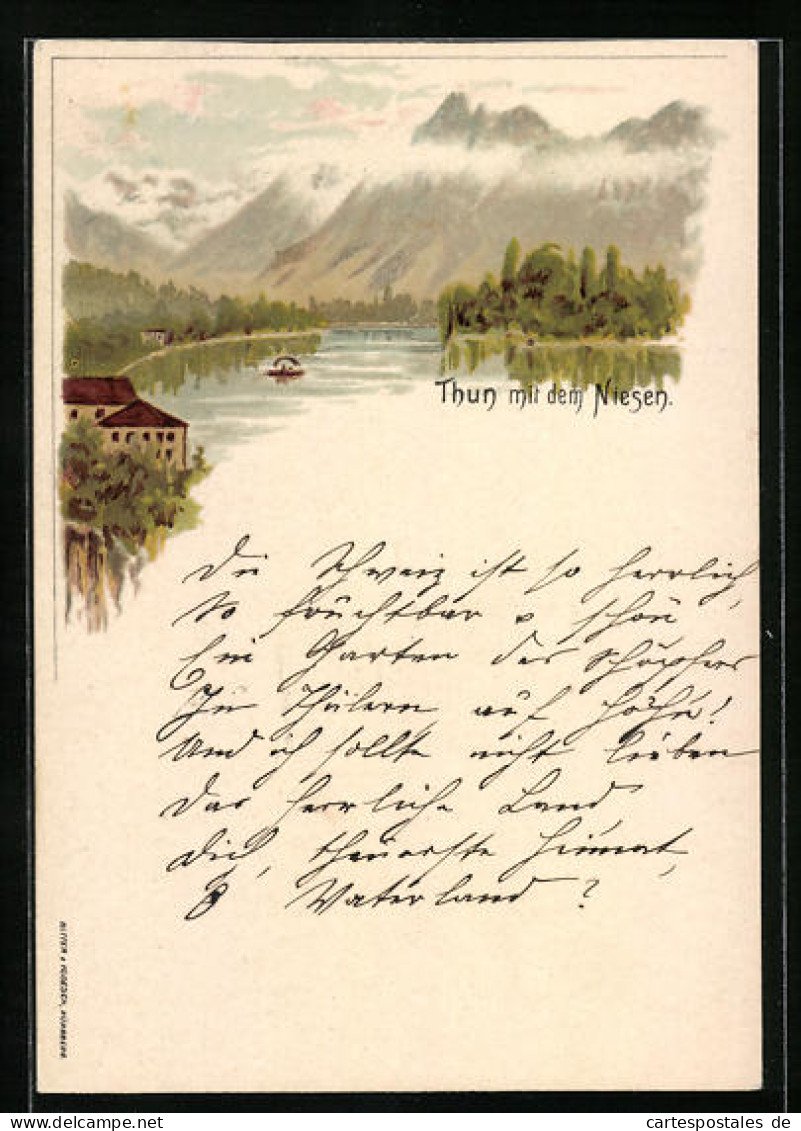 Thun mit dem Niesen.
Die Schweiz ist so herrlich,
So fruchtbar u schön
Ein Garten des Schöpfers
In Thälern auf Höhn!
Und ich sollte nicht lieben
Das herrliche Land,
Dich, theuerste Heimat,
O Vaterland?
NÜRNBERG
cartespostales de